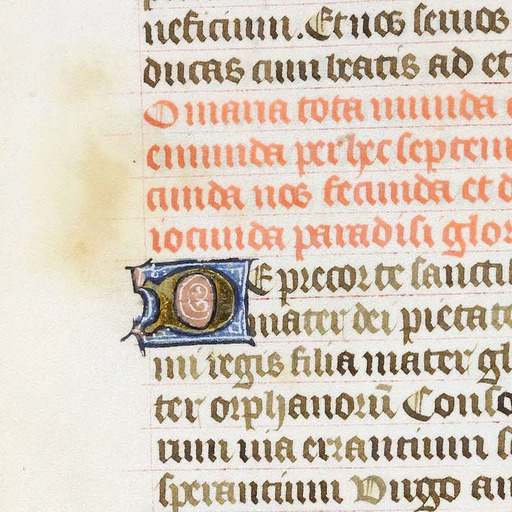 neficium. Et uos seruos
ducas cum beatis ad et
O maria tota munda
emunda per hec septem
cunda nos fecunda et d
iocunda paradisi glor
DE precor te sancti
mater dei pietate
mi regis filia mater gl
ter orphanorū Conso
rum uia errantium s
sperantium Uirgo an